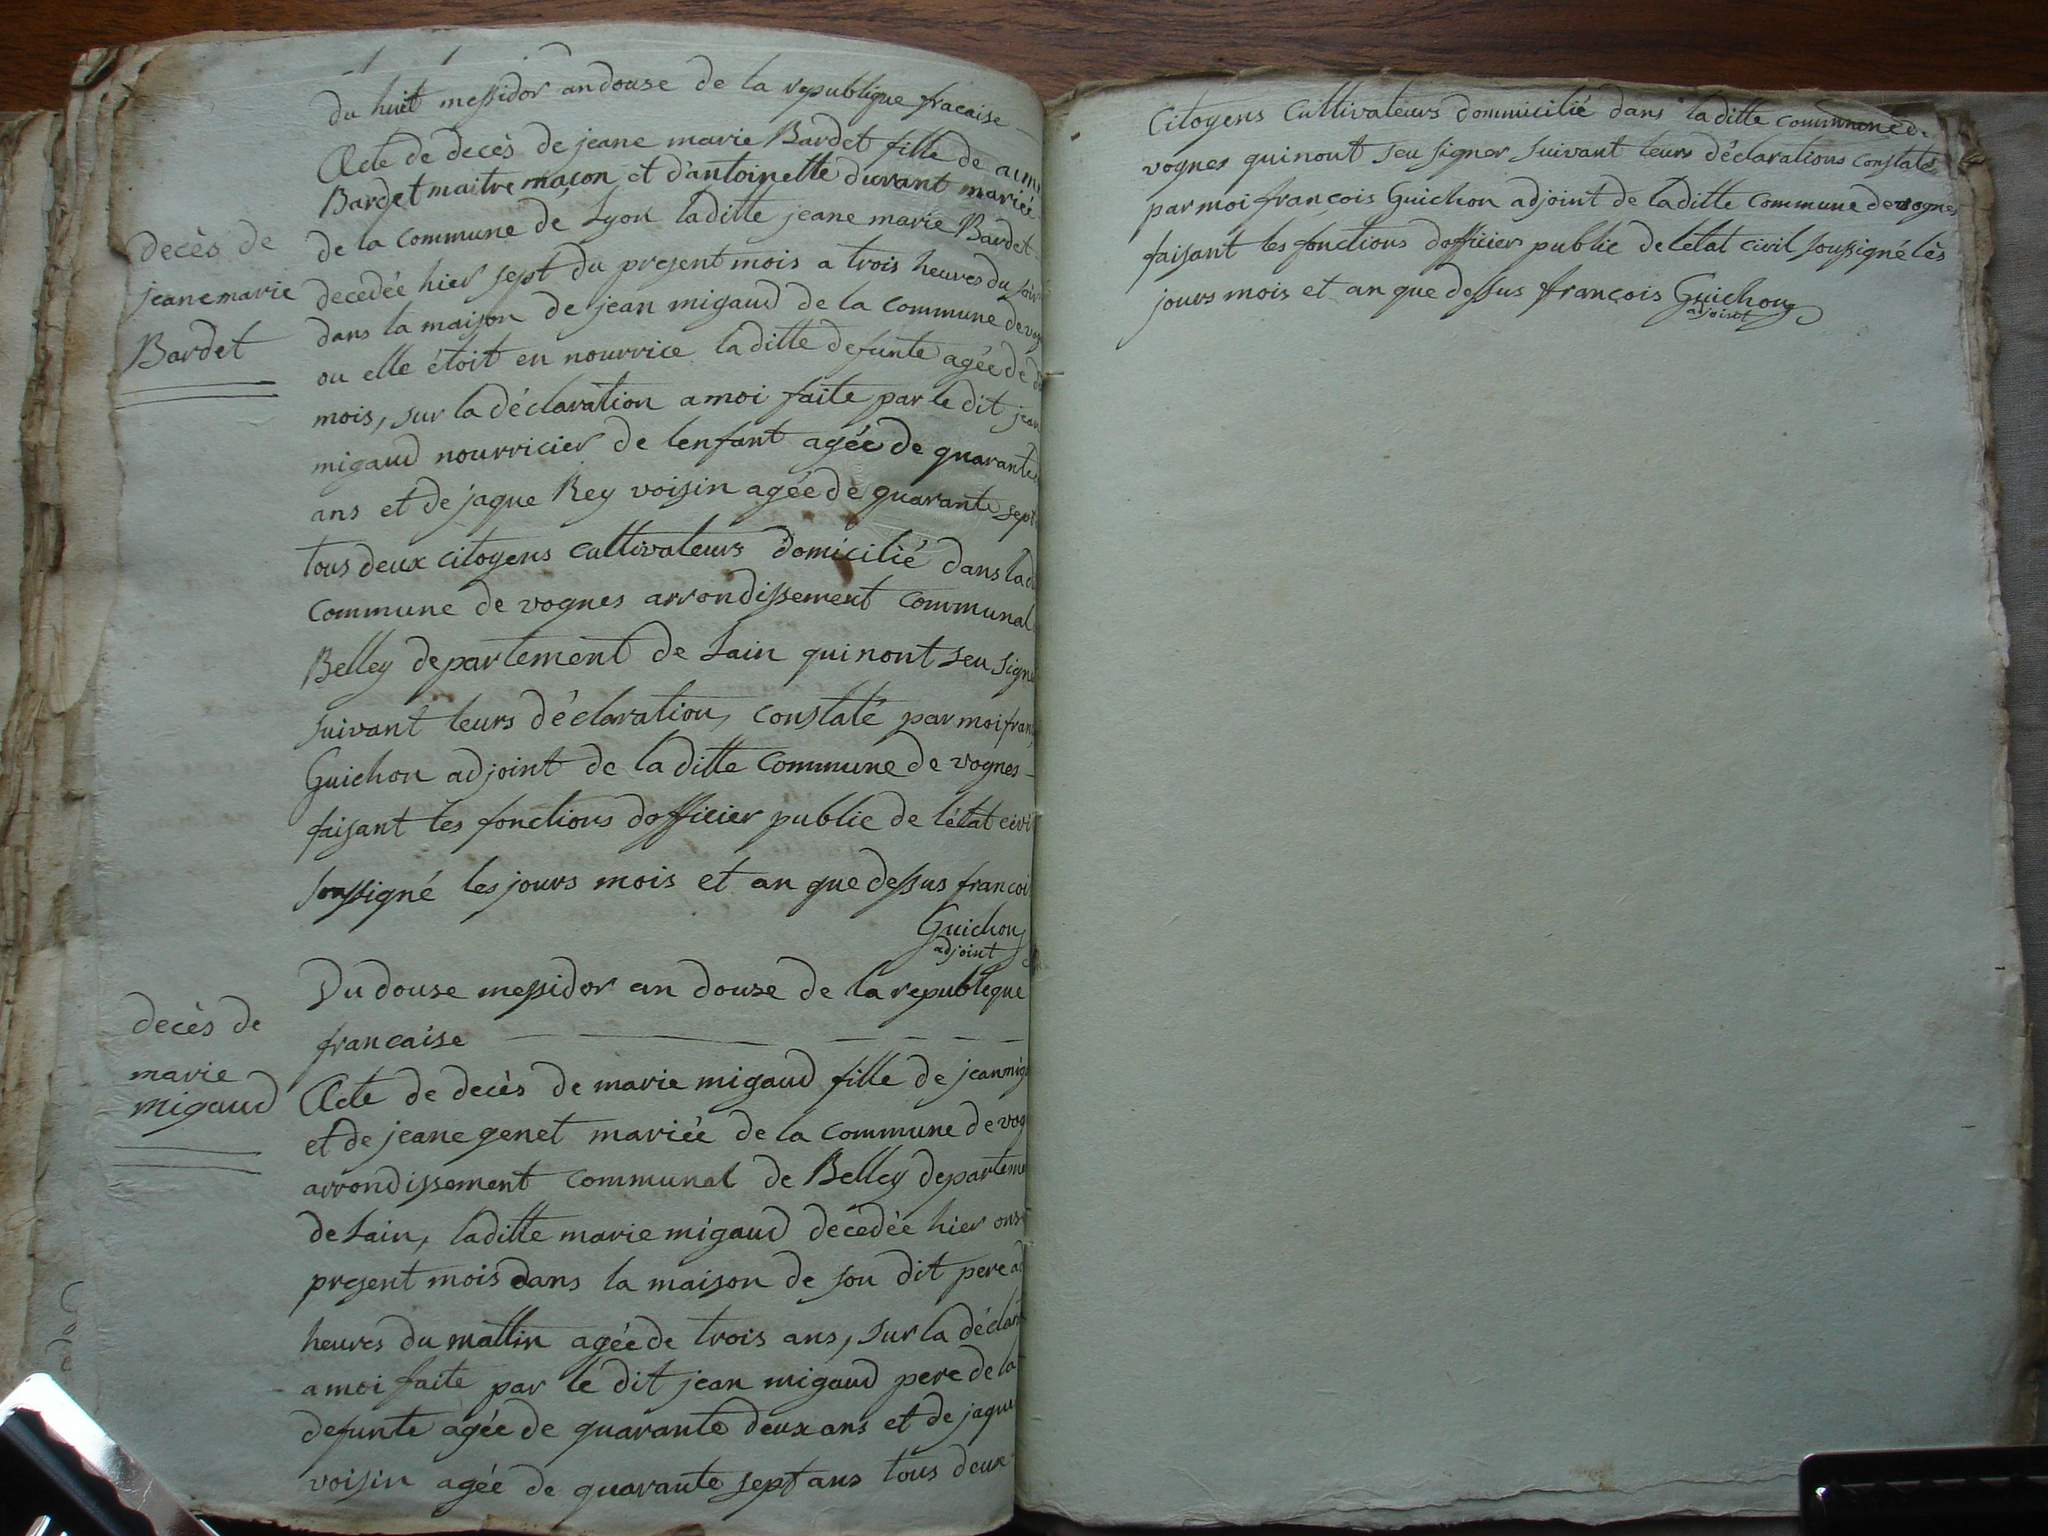 du huit messidor an douse de la republique fracaise
Acte de decès de jeane marie Bardet fille de aimé
Bardet maitre maçon et d'antoinette durant mariée
de la commune de Lyon laditte jeane marie Bardet
decès de
jeane marie
Bardet
decédée hier sept du present mois a trois heures du soir
dans la maison de jean migaud de la commune de vog
ou elle étoit en nourrice laditte defunte agée de
mois, sur la déclaration a moi faite par le dit jean
migaud nourricier de lenfant agée de quarante
ans et de jaque Rey voisin agée de quarante sept
tous deux citoyens cultivateurs domicilié dans la d
commune de vognes arrondissement communal
Belley departement de Lain qui nont seu signé
suivant leurs déclaration, constaté par moi fran
Guichon adjoint de la ditte commune de vognes
faisant les fonctions dofficier public de létat civi
soussigné les jours mois et an que dessus francoi
Guichon
adjoint
Du douse messidor an douse de la republique
francaise
decès de
marie
migaud
Acte de decès de marie migaud fille de jean mig
et de jeane genet mariée de la commune de vog
arrondissement communal de Belley departeme
de Lain, laditte marie migaud decedée hier ons
present mois dans la maison de son dit pere a
heures du mattin agée de trois ans, sur la déclar
a moi faite par le dit jean migaud pere de la
defunte agée de quarante deux ans et de jaque
voisin agée de quarante sept ans tous deux
Citoyens Cultivateurs dommicilié dans laditte commune de
vognes qui nont seu signer suivant leurs déclarations constaté
par moi françois Guichon adjoint de laditte Commune de vognes
faisant les fonctions dofficier public de létat civil soussigné lès
jours mois et an que dessus françois Guichon
adjoint